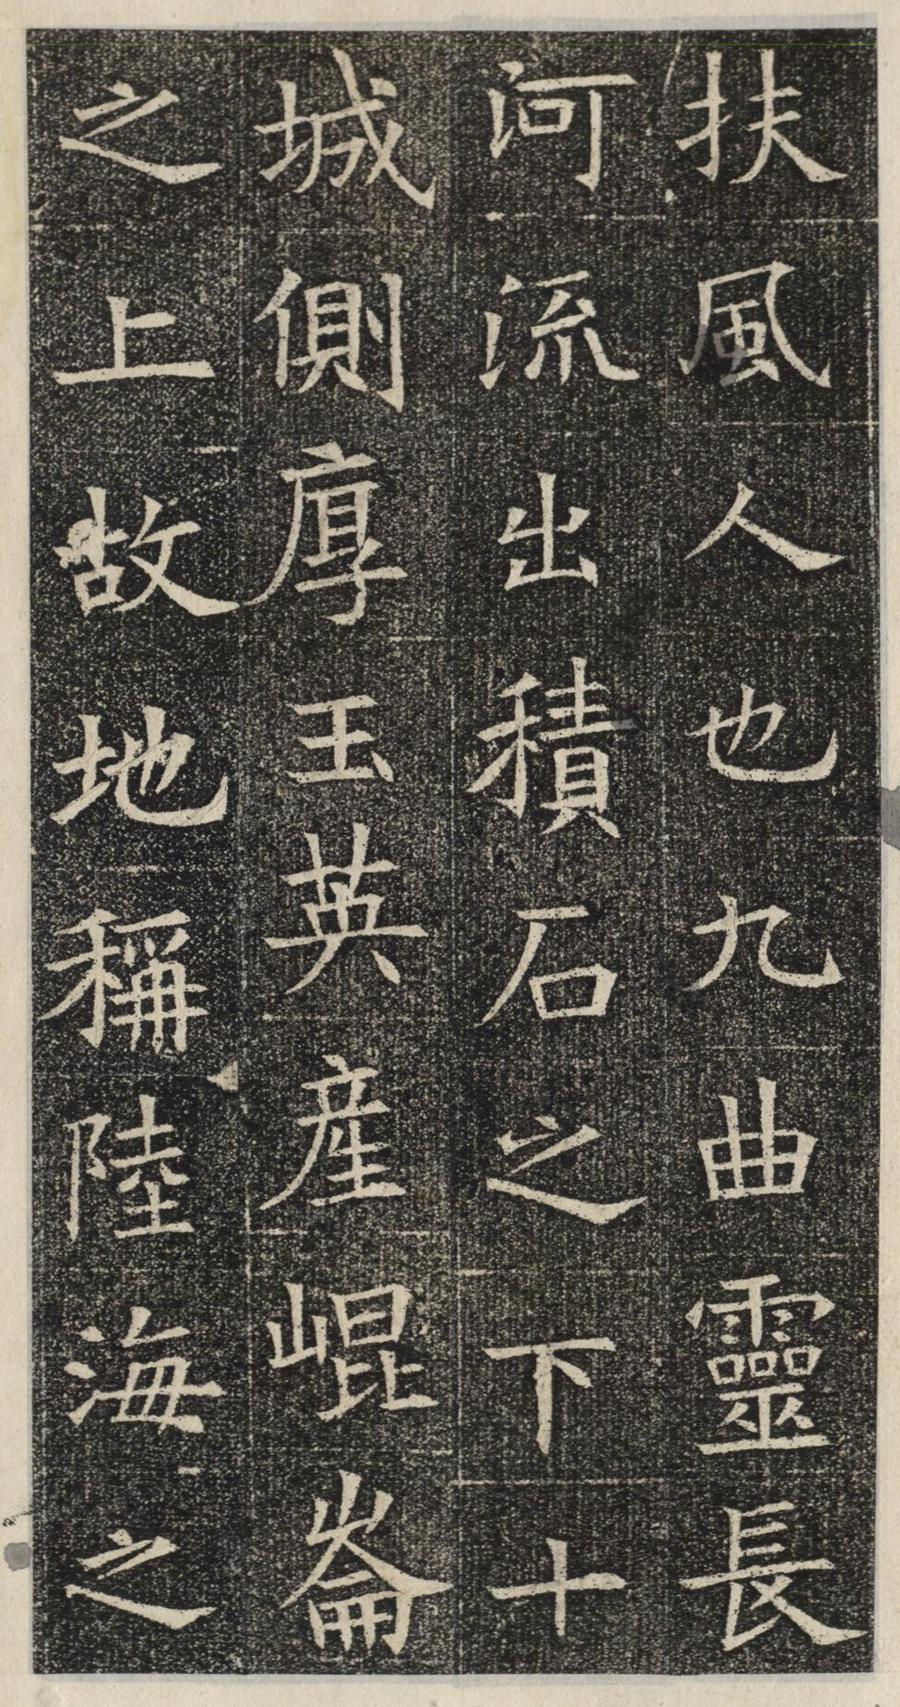 扶風人也九曲靈長
河流出積石之下十
城側厚玉英産崐崙
之上故地稱陸海之